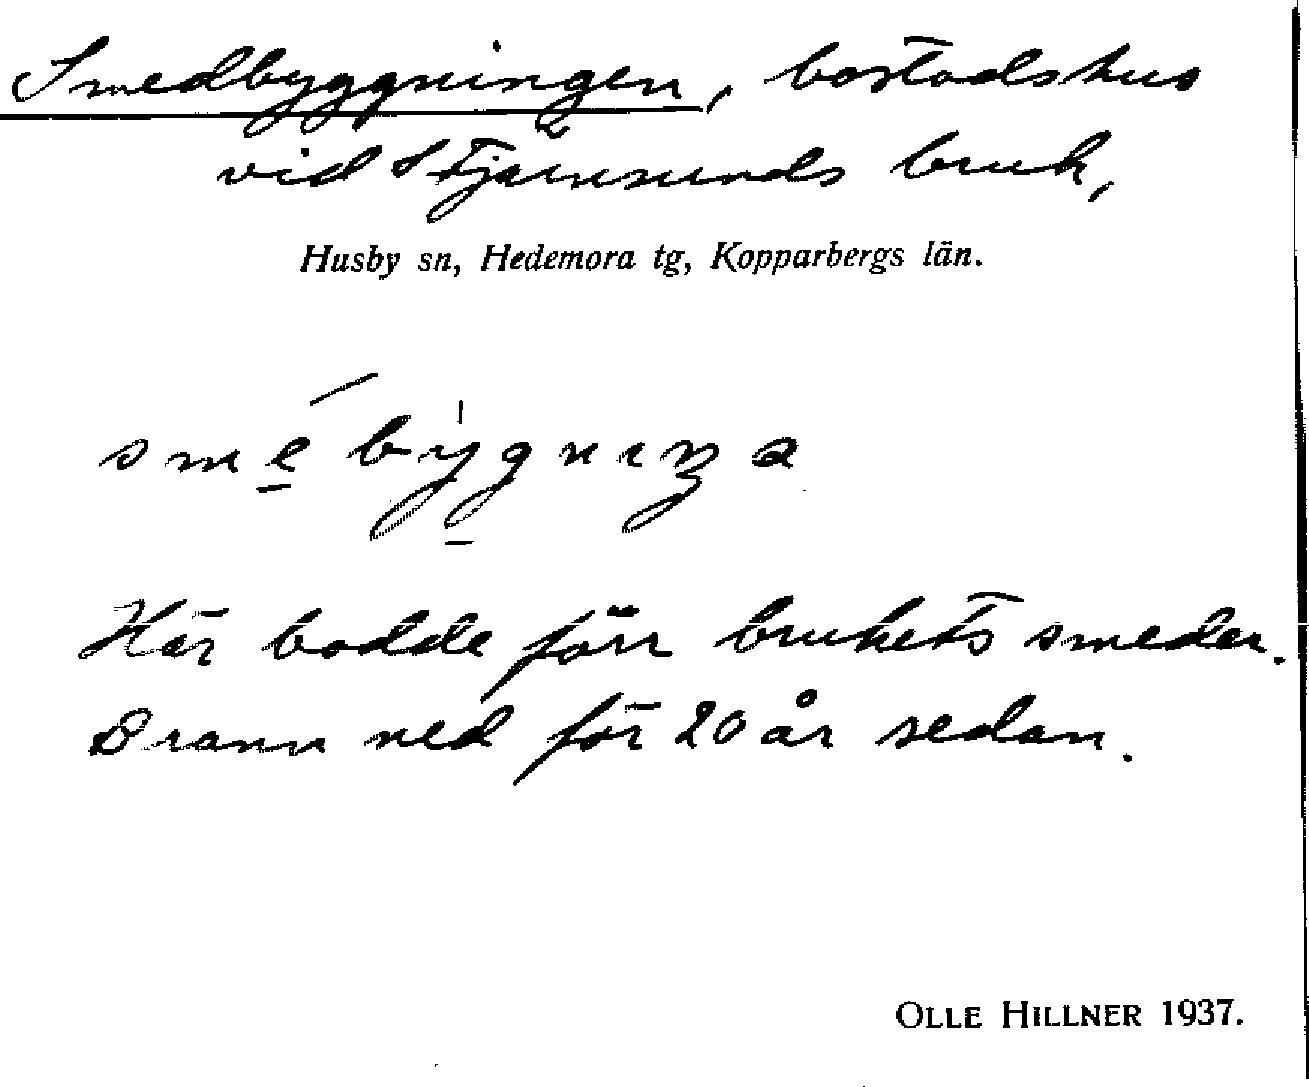 Smedbyggningen, bostadshus
vid Stjärnsunds bruk,
Husby sn, Hedemora tg, Kopparbergs län.
smé býgnıŋa
Här bodde förr brukets smeder.
Brann ned för 20 år sedan.
OLLE HILLNER 1937.